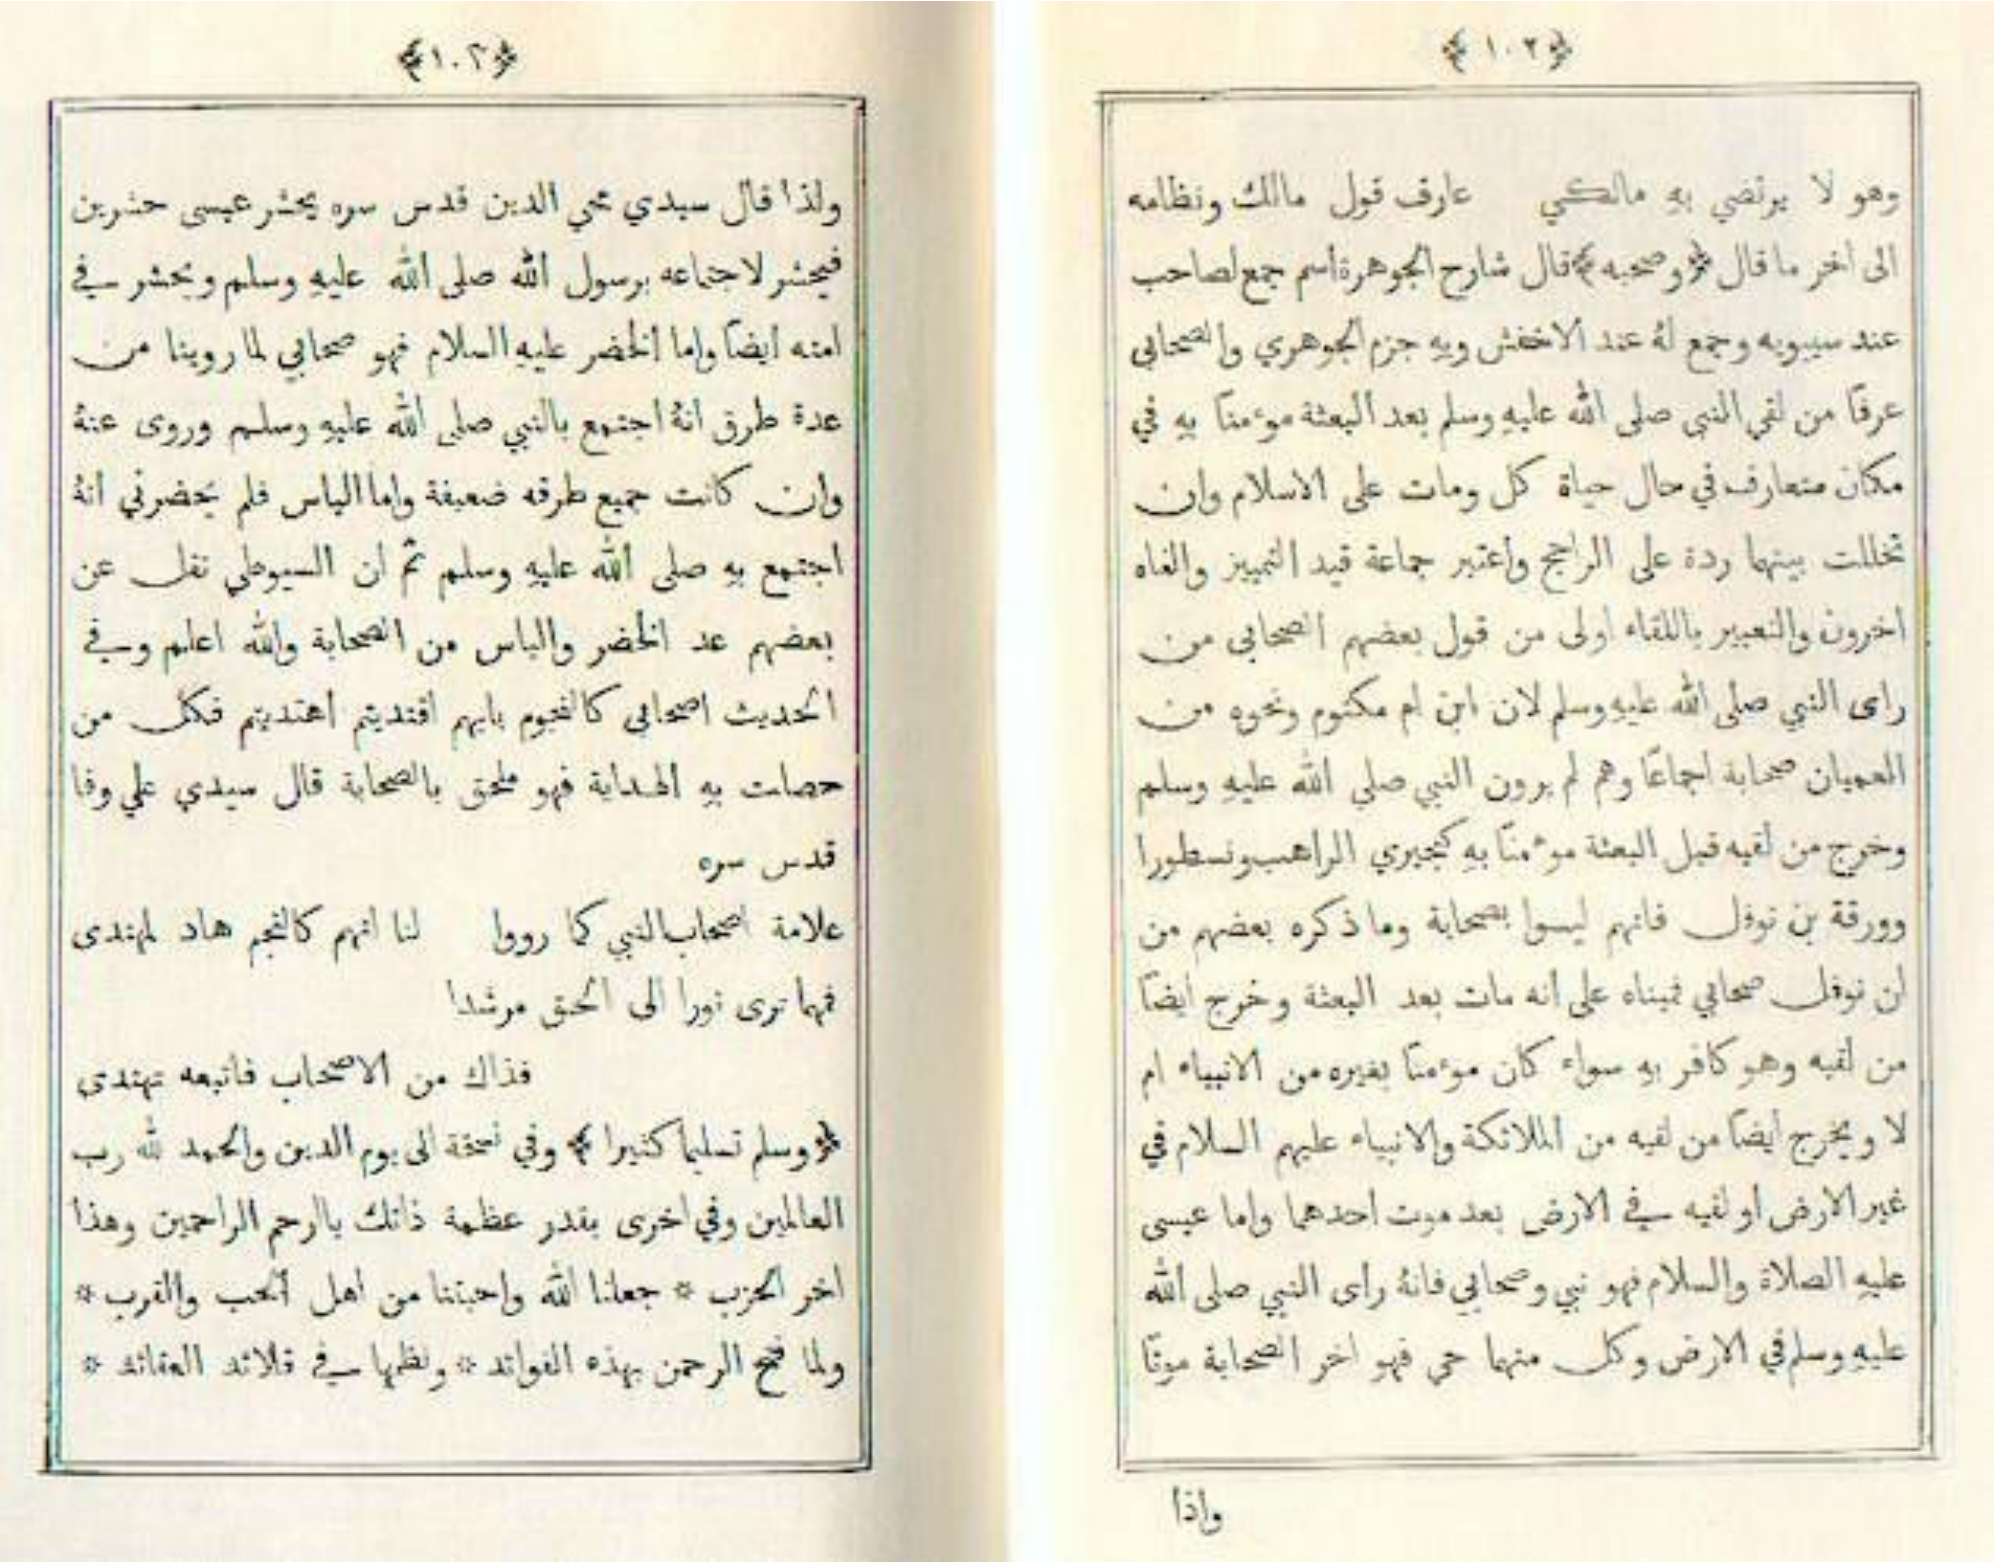 ﴿١٠٢﴾
وهو لا يرتضي به مالكي عارف قول مالك ونظامه
الى اخر ما قال ﴿وصحبه﴾ قال شارح الجوهرة اسم جمع لصاحب
عند سيبويه وجمع لهُ عند الاخفش وبه جزم الجوهري والصحابى
عرفًا من لقي النبي صلى الله عليهِ وسلم بعد البعثة موءمنًا بهِ في
مكان متعارف في حال حياة كل ومات على الاسلام وان
تخللت بينهما ردة على الراجح واعتبر جماعة قيد التمييز والغاه
اخرون والتعبير باللقاء اولى من قول بعضهم الصحابى من
راى النبي صلى الله عليهِ وسلم لان ابن ام مكتوم ونحوه من
العميان صحابة اجماعًا وهم لم يرون النبي صلي الله عليهِ وسلم
وخرج من لقيه قبل البعثة موءمنًا بهِ كبحيري الراهب ونسطورا
وورقة بن نوفل فانهم ليسوا بصحابة وما ذكره بعضهم من
ان نوفل صحابي فمبناه على انه مات بعد البعثة وخرج ايضًا
من لقيه وهو كافر بهِ سواء كان موءمنًا بغيره من الانبياء ام
لا ويخرج ايضًا من لقيه من الملائكة والانبياء عليهم السلام في
غير الارض او لقيه في الارض بعد موت احدهما واما عيسى
عليهِ الصلاة والسلام فهو نبي وصحابي فانهُ راى النبي صلى الله
عليهِ وسلم في الارض وكل منهما حي فهو اخر الصحابة موتًا
واذا
﴿١٠٣﴾
ولذا قال سيدي محي الدين قدس سره يحشر عيسى حشرين
فيحشر لاجتماعه برسول الله صلى الله عليهِ وسلم ويحشر في
امته ايضًا واما الخضر عليهِ السلام فهو صحابي لما روينا من
عدة طرق انهُ اجتمع بالنبي صلى الله عليهِ وسلم وروى عنهُ
وان كانت جميع طرقه ضعيفة واما الياس فلم يحضرني انهُ
اجتمع بهِ صلى الله عليهِ وسلم ثم ان السيوطي نقل عن
بعضهم عد الخضر والياس من الصحابة والله اعلم وفي
الحديث اصحابي كالنجوم بايهم اقتديتم اهتديتم فكل من
حصلت بهِ الهداية فهو ملحق بالصحابة قال سيدي علي وفا
قدس سره
علامة اصحاب النبي كما رووا لنا انهم كالنجم هاد لمهتدى
فمهما ترى نورا الى الحق مرشدا
فذاك من الاصحاب فاتبعه تهتدى
﴿وسلم تسليما كثيرا﴾ وفي نسخة الى يوم الدين والحمد لله رب
العالمين وفي اخرى بقدر عظمة ذاتك ياارحم الراحمين وهذا
اخر الحزب * جعلنا الله واحبتنا من اهل الحب والقرب *
ولما فتح الرحمن بهذه الفوائد * ونظمها في قلائد العقائد *